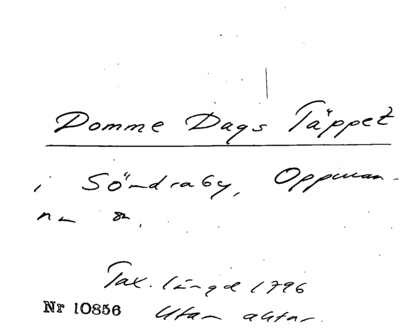 Domme Dags Täppet
i Söndraby, Oppman-
na sn.
Tax. längd 1796
Nr 10856 Utan aktnr.